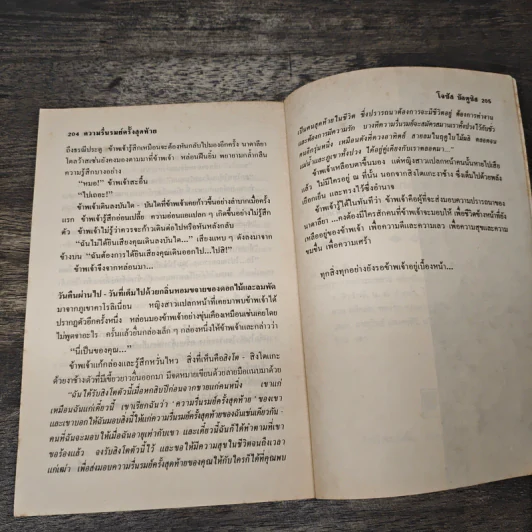 204 ความรื่นรมย์ครั้งสุดท้าย
ถึงธรณีประตู ข้าพเจ้ารู้สึกเหมือนจะต้องหันกลับไปมองอีกครั้ง นาตาลียา
ไดลวิสเช่นยังคงมองตามมาที่ข้าพเจ้า หล่อนฝืนยิ้ม พยายามกล้ำกลืน
ความรู้สึกบางอย่าง
"หมอ!" ข้าพเจ้าสะอื้น
"ไปเถอะ!"
ข้าพเจ้าเดินลงบันได - บันไดที่ข้าพเจ้าเคยก้าวขึ้นอย่างลำบากเมื่อครั้ง
แรก ข้าพเจ้ารู้สึกอ่อนเปลี้ย ความอ่อนแอแปลก ๆ เกิดขึ้นอย่างไม่รู้สึก
ตัว ข้าพเจ้าไม่รู้ว่าควรจะก้าวเดินต่อไปหรือหันกลับ
"ฉันไม่ได้ยินเสียงคุณเดินลงบันได..." เสียงแหบ ๆ ดังลงมาจาก
ข้างบน "ฉันต้องการได้ยินเสียงคุณเดินออกไป...ไปสิ!"
ข้าพเจ้าจึงจากหล่อนมา...
วันคืนผ่านไป - วันที่เต็มไปด้วยกลิ่นหอมขจายของดอกไม้และลมพัด
มาจากภูเขาคาโรลิเนียน หญิงสาวแปลกหน้าที่เคยมาพบข้าพเจ้าได้
ปรากฏตัวอีกครั้งหนึ่ง หล่อนมองข้าพเจ้าอย่างขุ่นเคืองเหมือนเช่นเคยโดย
ไม่พูดจาอะไร ครั้นแล้วยื่นกล่องเล็ก ๆ กล่องหนึ่งให้ข้าพเจ้าและกล่าวว่า
"นี่เป็นของคุณ..."
ข้าพเจ้าแก้กล่องและรู้สึกหวั่นไหว สิ่งที่เห็นคือสิงโต - สิงโตแกะ
ด้วยงาช้างตัวที่มีเขี้ยวยาวยื่นออกมา มีจดหมายเขียนด้วยลายมือแนบมาด้วย
"ฉันได้รับสิงโตตัวนี้เมื่อหกสิบปีก่อนจากชายแก่คนหนึ่ง เขาแก่
เหมือนฉันแก่เดี๋ยวนี้ เขาเรียกฉันว่า 'ความรื่นรมย์ครั้งสุดท้าย' ของเขา
และเขาบอกให้ฉันมอบสิ่งนี้ให้แก่ความรื่นรมย์ครั้งสุดท้ายของฉันเช่นเดียวกัน -
คนที่ฉันจะมอบให้เมื่อฉันอายุเท่ากับเขา และเดี๋ยวนี้ฉันก็ได้ทำตามที่เขา
ขอร้องแล้ว จงรับสิงโตตัวนี้ไว้ และขอให้มีความสุขในชีวิตจนถึงเวลา
แก่เฒ่า เพื่อส่งมอบความรื่นรมย์ครั้งสุดท้ายของคุณให้กับใครก็ได้ที่คุณพบ
โจซัส นัดดูนัส 205
เป็นคนสุดท้ายในชีวิต ซึ่งปรารถนาต้องการจะมีชีวิตอยู่ ต้องการทำงาน
และต้องการมีความรัก บางทีความรื่นรมย์จะสมัครสมานเราทั้งปวงไว้กับชั่ว
คนอีกรุ่นหนึ่ง เหมือนดังที่ดวงอาทิตย์ สายลมในฤดูใบไม้ผลิ ตลอดจน
แม่น้ำและภูเขาทั้งปวง ได้อยู่คู่เคียงกับเราตลอดมา..."
ข้าพเจ้าเหลือบตาขึ้นมอง แต่หญิงสาวแปลกหน้าคนนั้นหายไปเสีย
แล้ว ไม่มีใครอยู่ ณ ที่นั้น นอกจากสิงโตแกะงาช้าง ซึ่งเต็มไปด้วยพลัง
เยือกเย็น และทรงไว้ซึ่งอำนาจ
ข้าพเจ้ารู้ได้ในทันทีว่า ข้าพเจ้าคือผู้ที่จะส่งมอบความปรารถนาของ
นาตาลียา ...คงต้องมีใครสักคนที่ข้าพเจ้าจะมอบให้ เพื่อชีวิตข้างหน้าที่ยัง
เหลืออยู่ของข้าพเจ้า เพื่อความดีและความเลว เพื่อความสุขและความ
ขมขื่น เพื่อความเศร้า
ทุกสิ่งทุกอย่างยังรอข้าพเจ้าอยู่เบื้องหน้า...